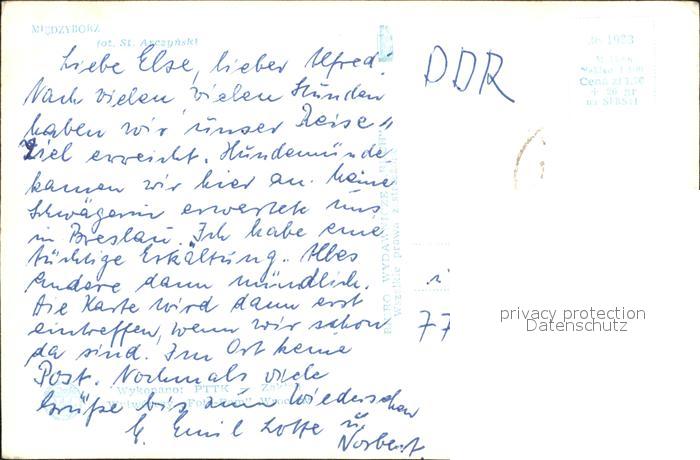 MIĘDZYBORZ
fot. St. Arczyński
Liebe Else, lieber Alfred.
Nach vielen vielen Stunden
haben wir unser Reise"
Ziel erreicht. Hundemüde
kamen wir hier an. Meine
Schwägerin erwartete uns
in Breslau. Ich habe eine
tüchtige Erkältung. Alles
andere dann mündlich.
Die Karte wird dann erst
eintreffen, wenn wir schon
da sind. Im Ort keine
Post. Nochmals viele
Grüße bis zum Wiedersehen
E. Emil Lotte u
Norbert
Wykonano: PTTK
BIURO WYDAWNICZE
Wszelkie prawa
DDR
Cena zł
77
privacy protection
Datenschutz